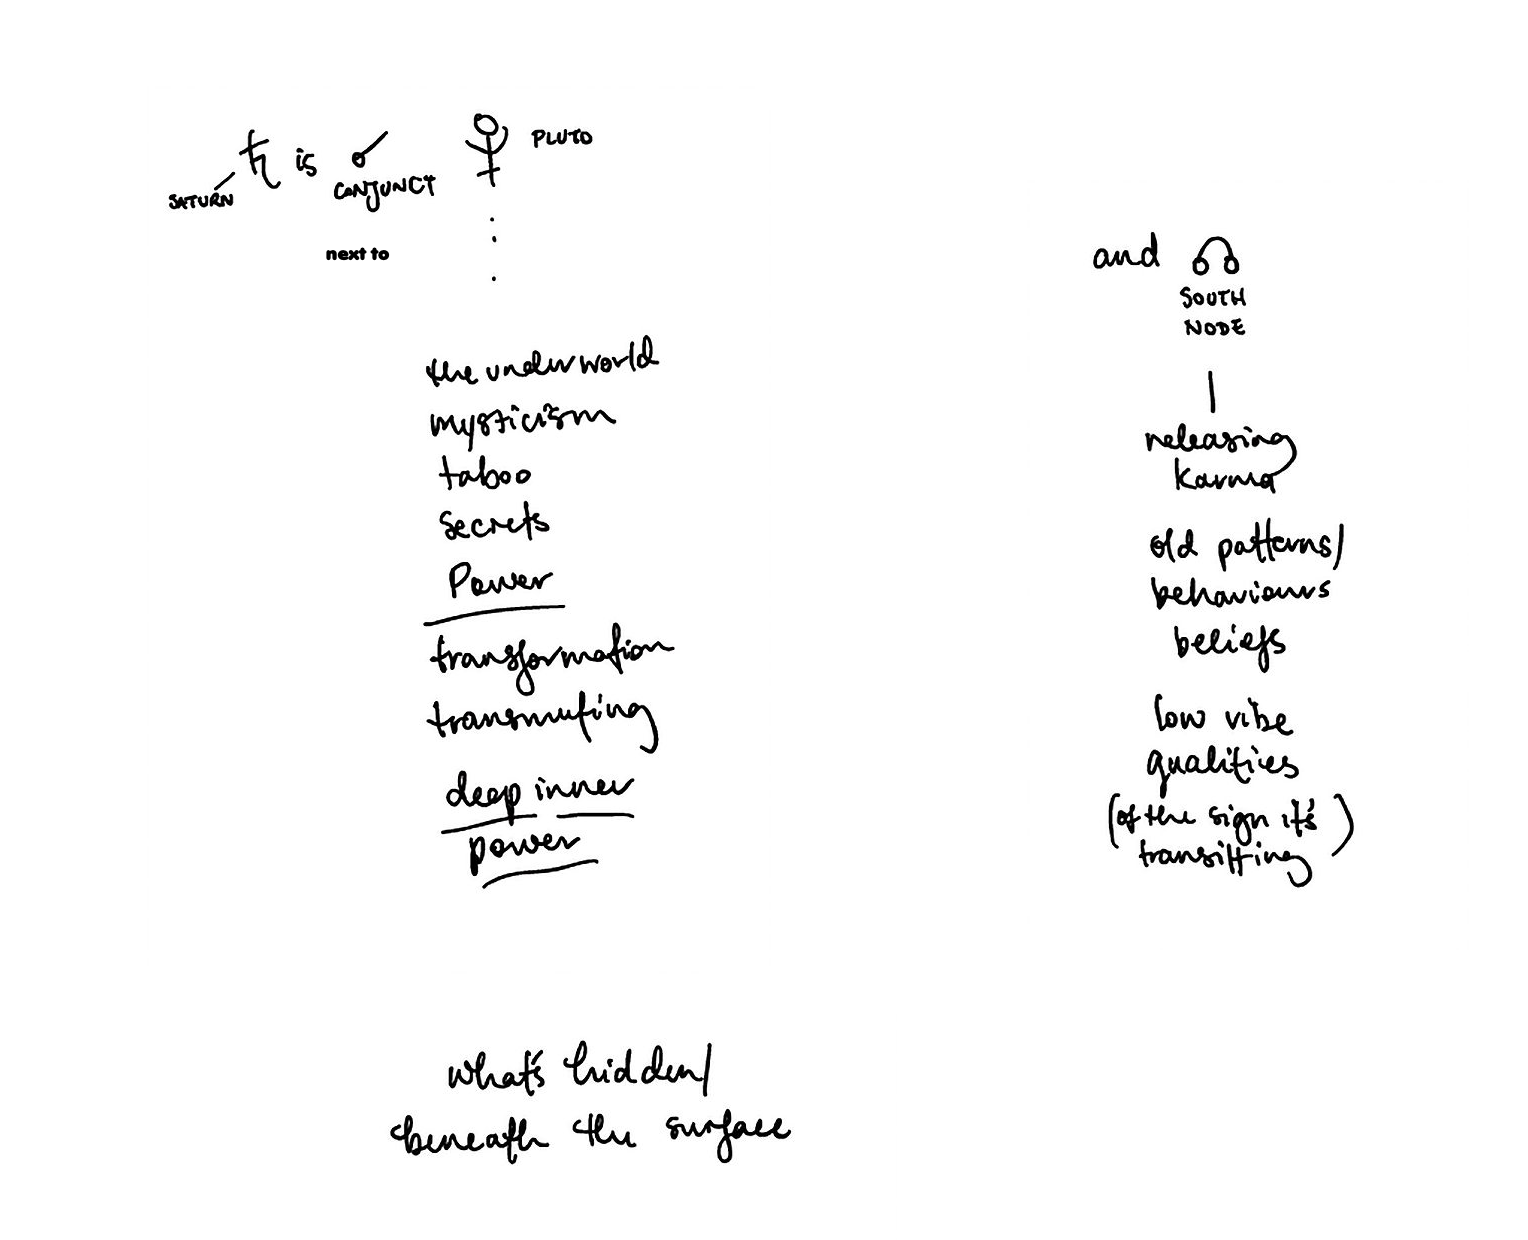 ♄ is ☌ PLUTO
SATURN CONJUNCT
next to
the underworld
mysticism
taboo
secrets
Power
transformation
transmuting
deep inner
power
what's hidden/
beneath the surface
and ☋
SOUTH
NODE
releasing
karma
old patterns/
behaviours
beliefs
low vibe
qualities
(of the sign it's
transitting)